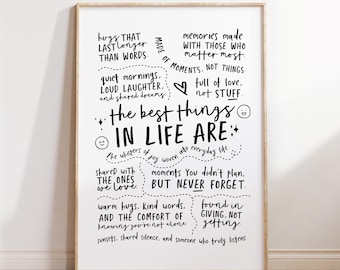 hugs that
LAST longer
THAN WORDS
MADE OF MOMENTS, NOT THINGS
memories made
WITH THOSE WHO
matter most
quiet mornings,
LOUD LAUGHTER,
and shared dreams
full of love,
not STUFF
the best things
IN LIFE ARE:
the whispers of joy woven into everyday life
shared with
THE ONES
we love
moments you didn't plan,
BUT NEVER FORGET
warm hugs, kind words,
AND THE COMFORT OF
knowing you're not alone
found in
GIVING, NOT
getting
sunsets, shared silence, and someone who truly listens